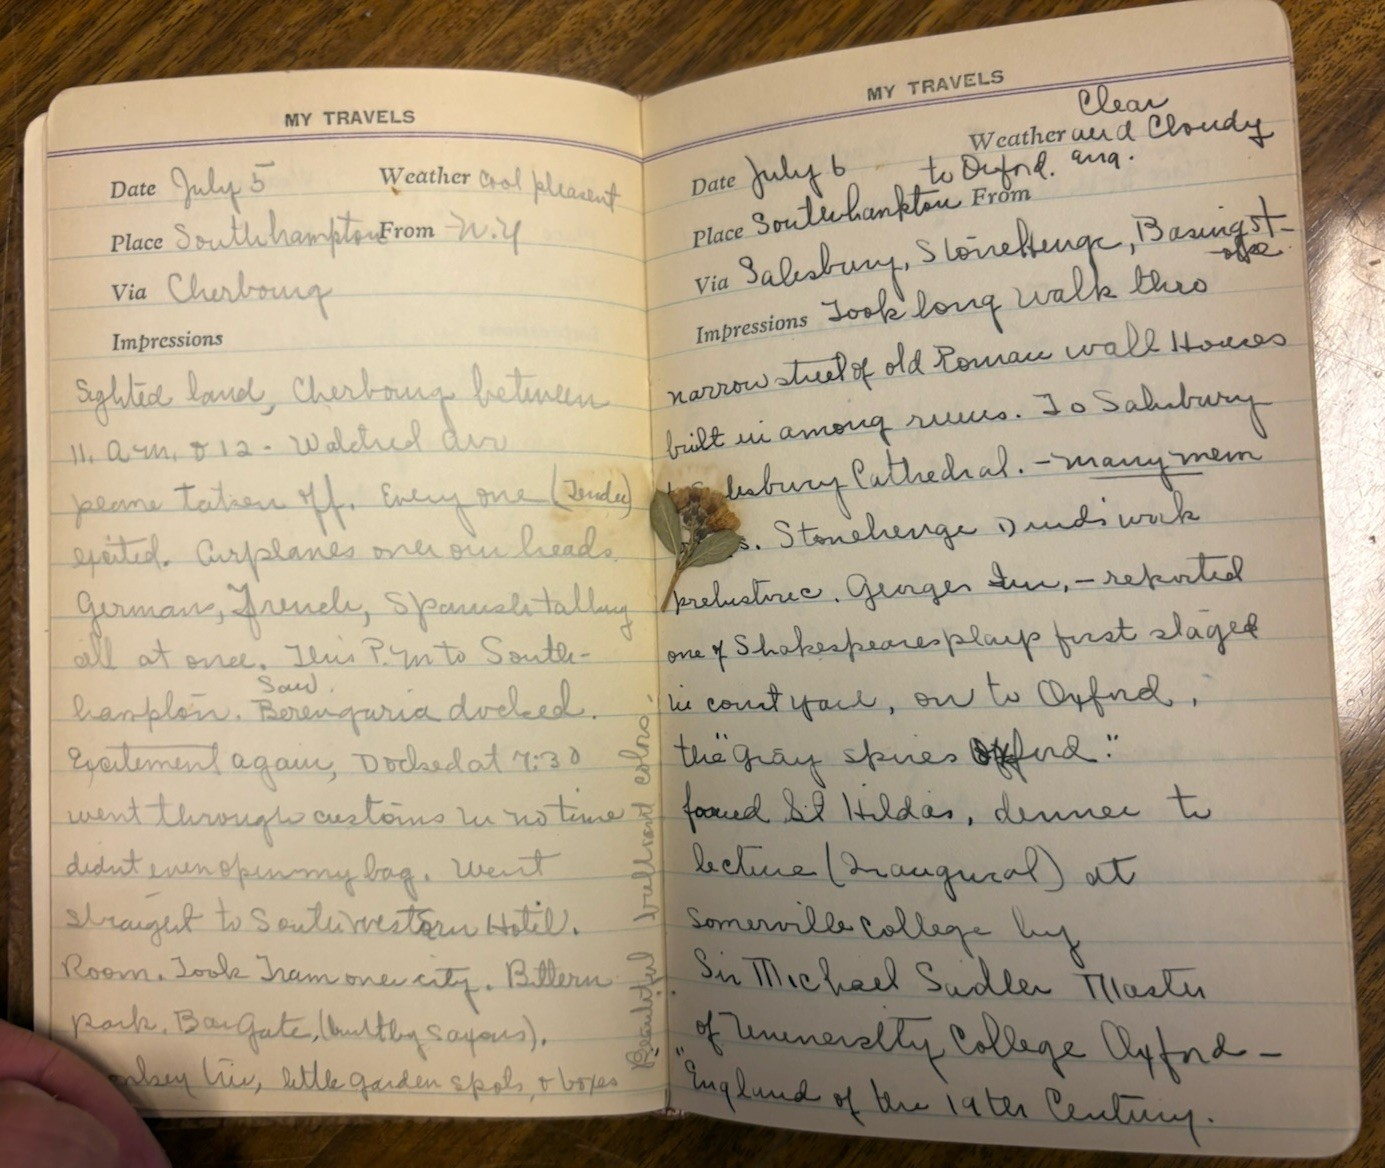 MY TRAVELS
Date July 5 Weather cool pleasent
Place Southhampton From N.Y
Via Cherbourg
Impressions
Sighted land, Cherbourg between
11. A.M. & 12 - Watched
taken off. Every one (Tender)
exited. Airplanes over our heads.
German, French, Spanish talking
all at once. This P.M to South-
Saw
hampton. Berengaria docked.
Excitement again, Docked at 7:30
went through customs in no time
didnt even open my bag. Went
straight to Southwestern Hotel.
Room. Took Tram over city. Bittern
park, BarGate, (built by Saxons).
tree, little garden spots, & boxes
Beautiful brilliant colors
MY TRAVELS
Clear
Weather and Cloudy
Date July 6 to Oxford. Eng.
Place Southhankton From
Via Salesbury, StoneHenge, Basingst-
oke
Impressions Took long walk thro
narrow street of old Roman wall Houses
built in among ruins. To Salisbury
Cathedral. - many mem
s. Stonehenge Druids work
prehistoric. Georges Inn, - reported
one of Shakespeares plays first staged
in court yard, on to Oxford,
the "gray spires Oxford."
found St Hildas, dinner to
lecture (Inaugural) at
Somerville College by
Sir Michael Sadler Master
of University College Oxford -
"England of the 19th Century.